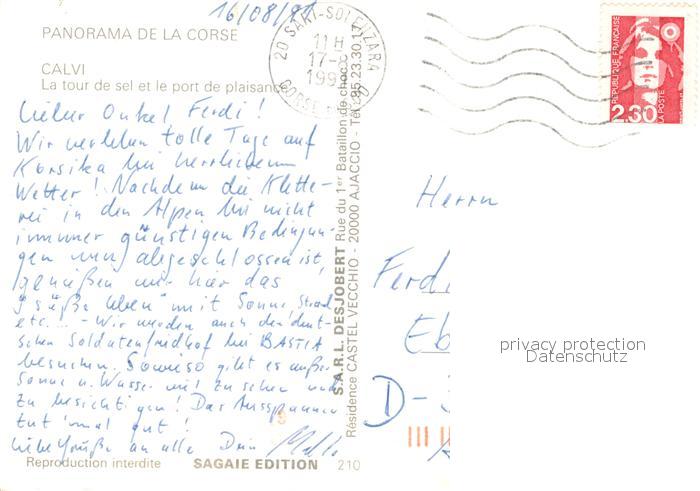 16/08/91
PANORAMA DE LA CORSE
CALVI
La tour de sel et le port de plaisance
Lieber Onkel Ferdi!
Wir verleben tolle Tage auf
Korsika bei herrlichem
Wetter! Nachdem die Klette-
rei in den Alpen bei nicht
immer günstigen Bedingun-
gen nun abgeschlossen ist,
genießen wir hier das
"süße Leben" mit Sonne, Strand
etc... - Wir werden auch den deut-
schen Soldatenfriedhof bei BASTIA
besuchen. Sowieso gibt es außer
Sonne u. Wasser viel zu sehen und
zu besichtigen! Das Ausspannen
tut 'mal gut!
Liebe Grüße an alle Dein
Reproduction interdite SAGAIE EDITION 210
S.A.R.L. DESJOBERT Rue du 1er Bataillon de choc
Résidence CASTEL VECCHIO - 20000 AJACCIO - Tél. 95.23.30.17
20 SARI-SOLENZARA
11 H
17-
199
CORSE
REPUBLIQUE FRANÇAISE
2,30
LA POSTE
Herrn
Ferdi
Eb
D-
privacy protection
Datenschutz